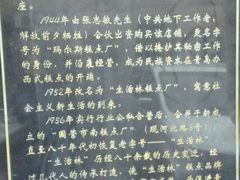 座。
1944年由张志敏先生(中共地下工作者,
解放前夕牺牲)合伙出资购买该店铺,定名
字为“玛尔斯糕点厂”,借以掩护其秘密工作
的身份,并沿袭经营,成为民族资本在青岛办
西式糕点的开端。
1952年改名为“生活林糕点厂”,寓意社
会主义新生活的到来。
1956年实行行业公私合营后,合并于新成
立的“国营市南糕点厂”(观河北路
直至八十年代初恢复老字号——“生活林”
“生活林”历经八十余载的历史变迁,经
过几代人的传承打造,使“生活林”糕点品牌